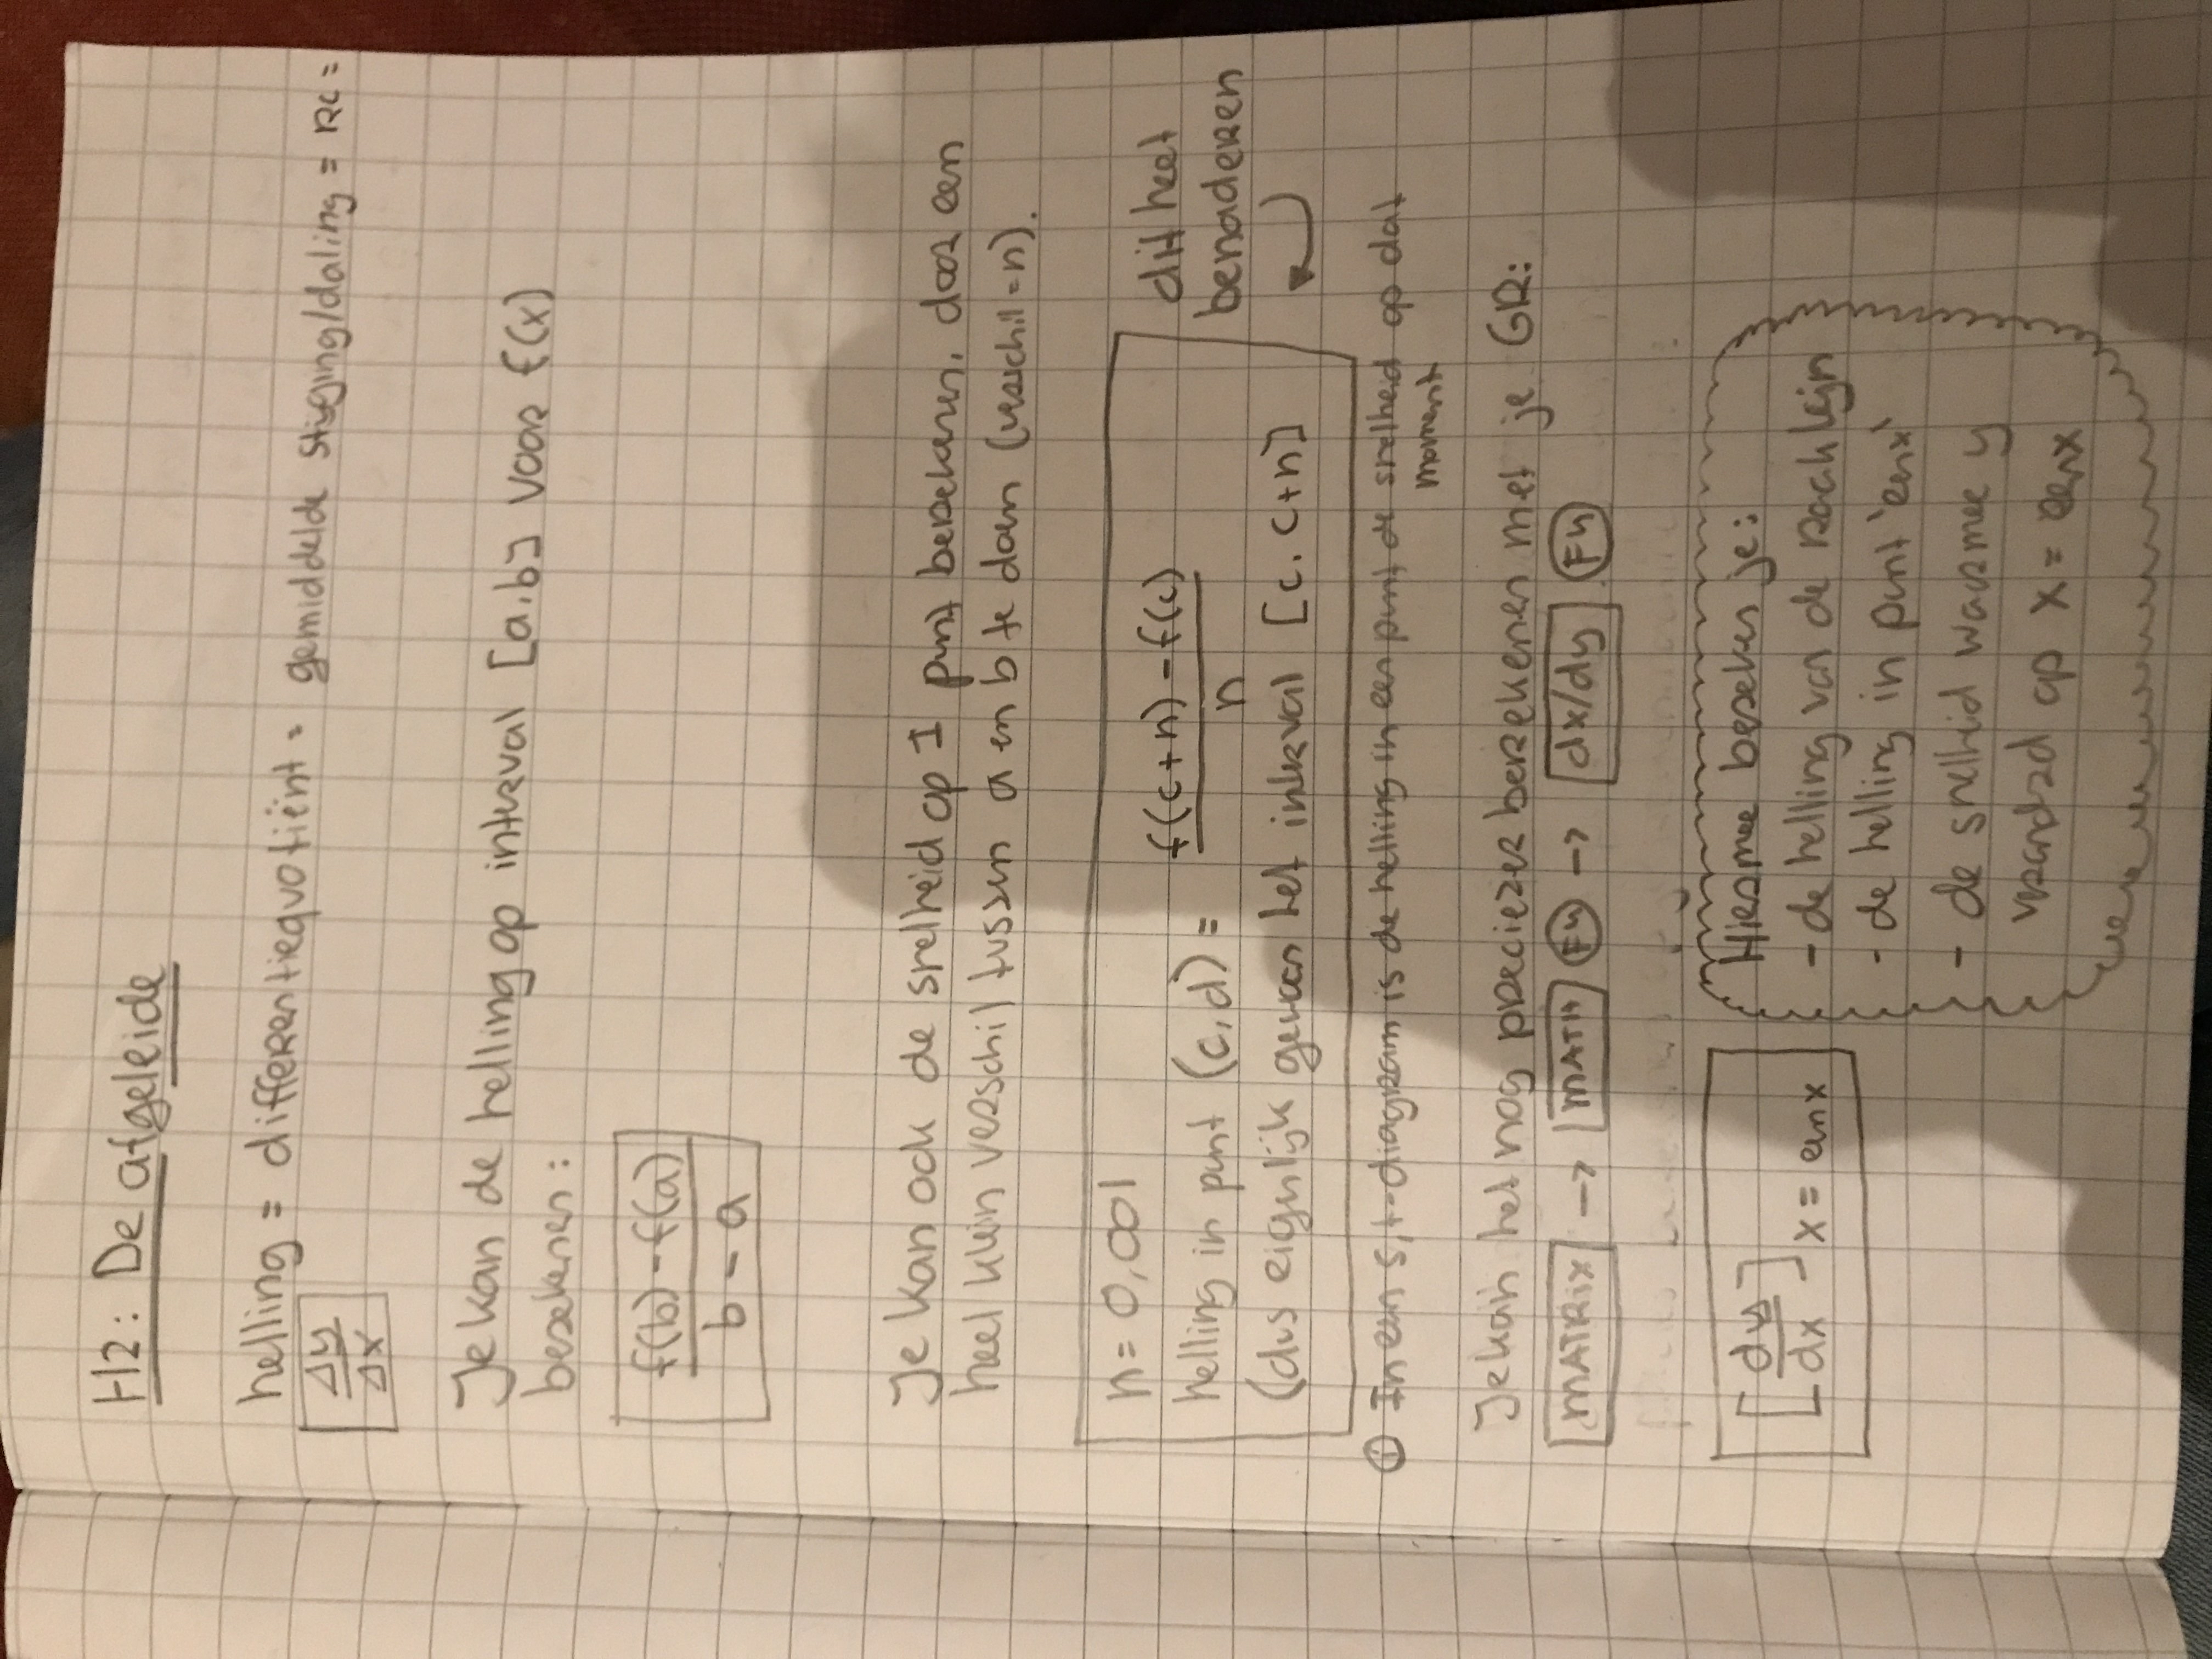 H2: De afgeleide
helling = differentiequotiënt = gemiddelde stijging/daling = RC =
Δy
Δx
Je kan de helling op interval [a,b] voor f(x)
berekenen:
f(b) - f(a)
b - a
Je kan ook de snelheid op 1 punt berekenen, door een
heel klein verschil tussen a en b te doen (verschil = n).
n = 0,001
helling in punt (c,d) = f(c+n) - f(c)
n
(dus eigenlijk gewoon het interval [c, c+n]
dit heet
benaderen
In een s,t-diagram is de helling in een punt de snelheid op dat
moment
Je kan het nog preciezer berekenen met je GR:
MATRIX -> MATH F4 -> dx/dy F4
[dy
dx] x = eenx
Hiermee bereken je:
- de helling van de raaklijn
- de helling in punt 'eenx'
- de snelheid waarmee y
verandrd op x = eenx